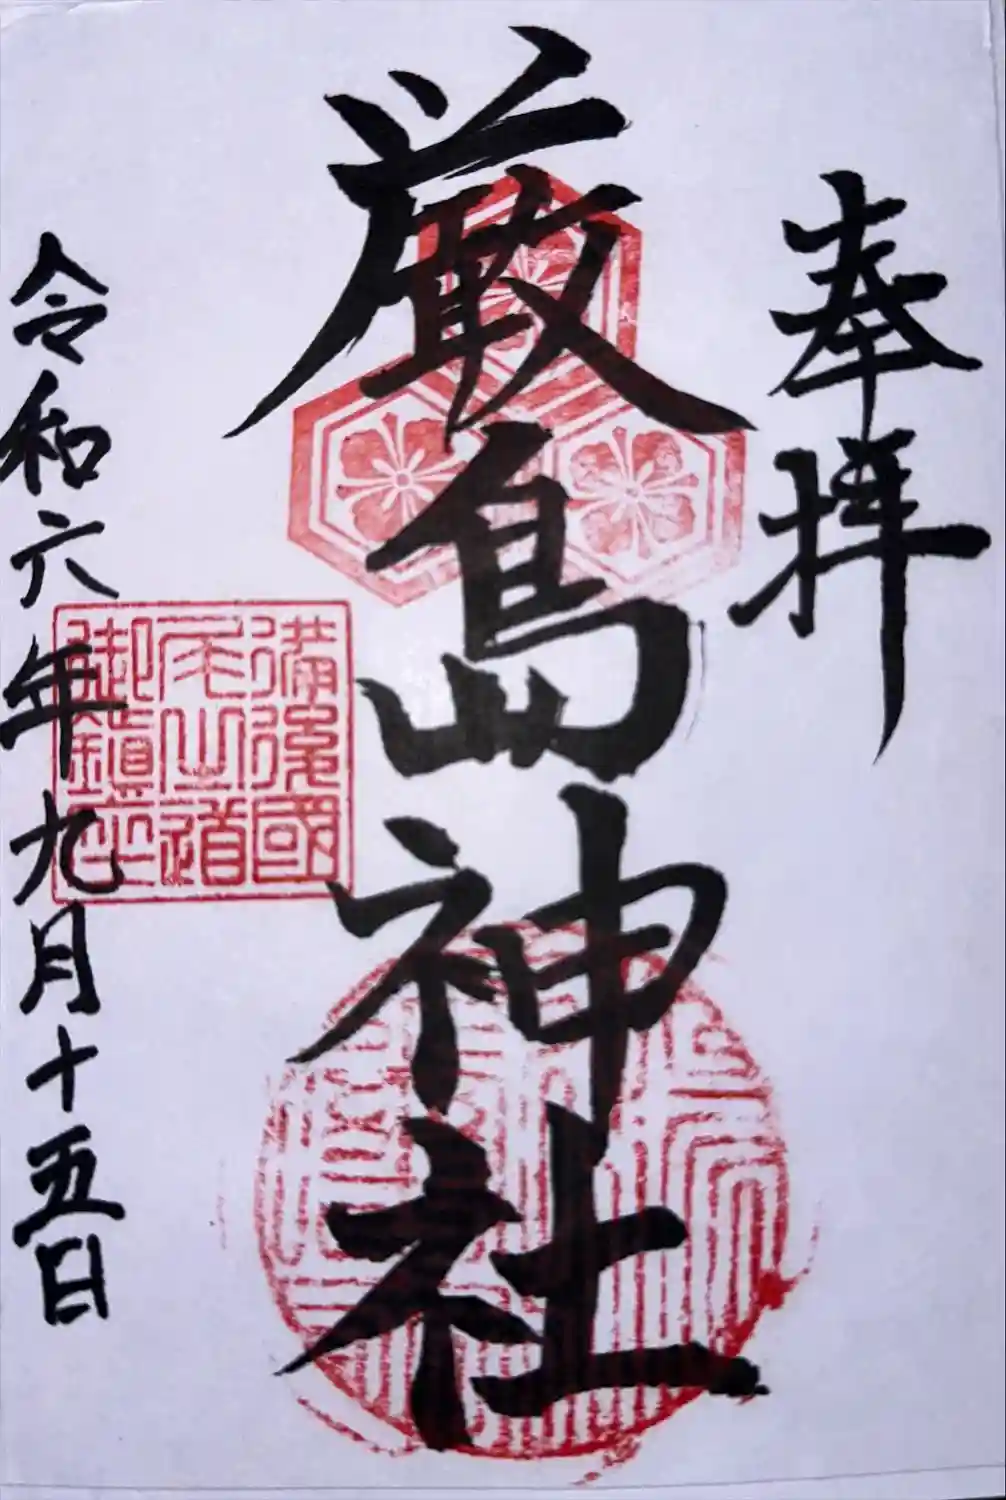 奉拝
厳島神社
備後國
尾之道
御鎮座
令和六年九月十五日